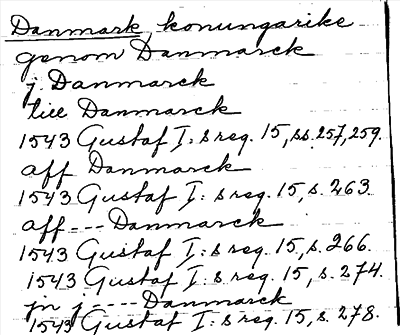 Danmark, konungarike
genom Danmarck
j Danmarck
till Danmarck
1543 Gustaf I:s reg. 15, ss. 257, 259.
aff Danmarck
1543 Gustaf I:s reg. 15, s. 263.
aff --- Danmarck
1543 Gustaf I:s reg. 15, s. 266.
1543 Gustaf I:s reg. 15, s. 274.
jn j ---- Danmarck
1543 Gustaf I:s reg. 15, s. 278.